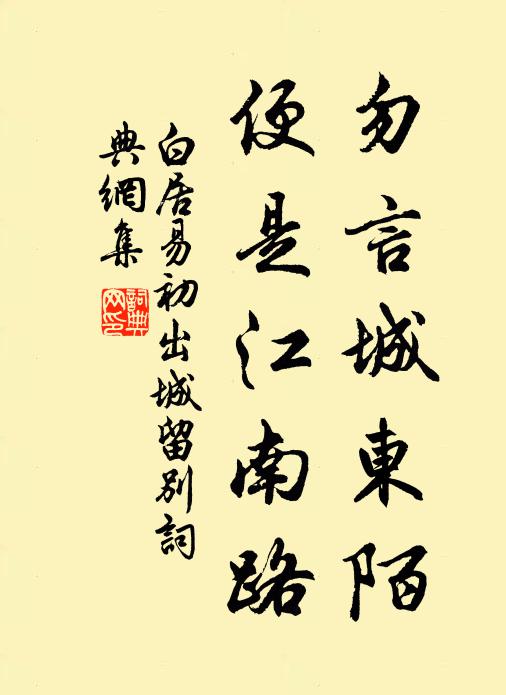 勿言城東陌
便是江南路
白居易初出城留別詞
典網集
詞典
网印